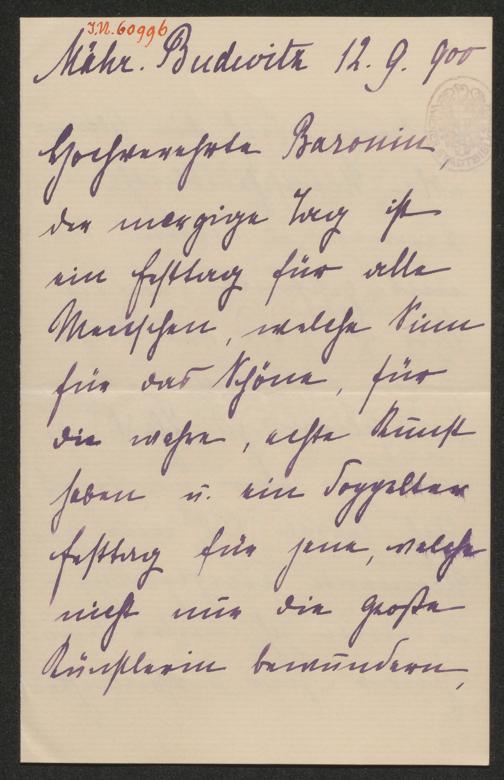 I.N. 60996
Mähr. Budwitz 12. 9. 900
Hochverehrte Baronin,
der morgige Tag ist
ein Festtag für alle
Menschen, welche Sinn
für das Schöne, für
die wahre, echte Kunst
haben u. ein doppelter
Festtag für jene, welche
nicht nur die große
Künstlerin bewundern,